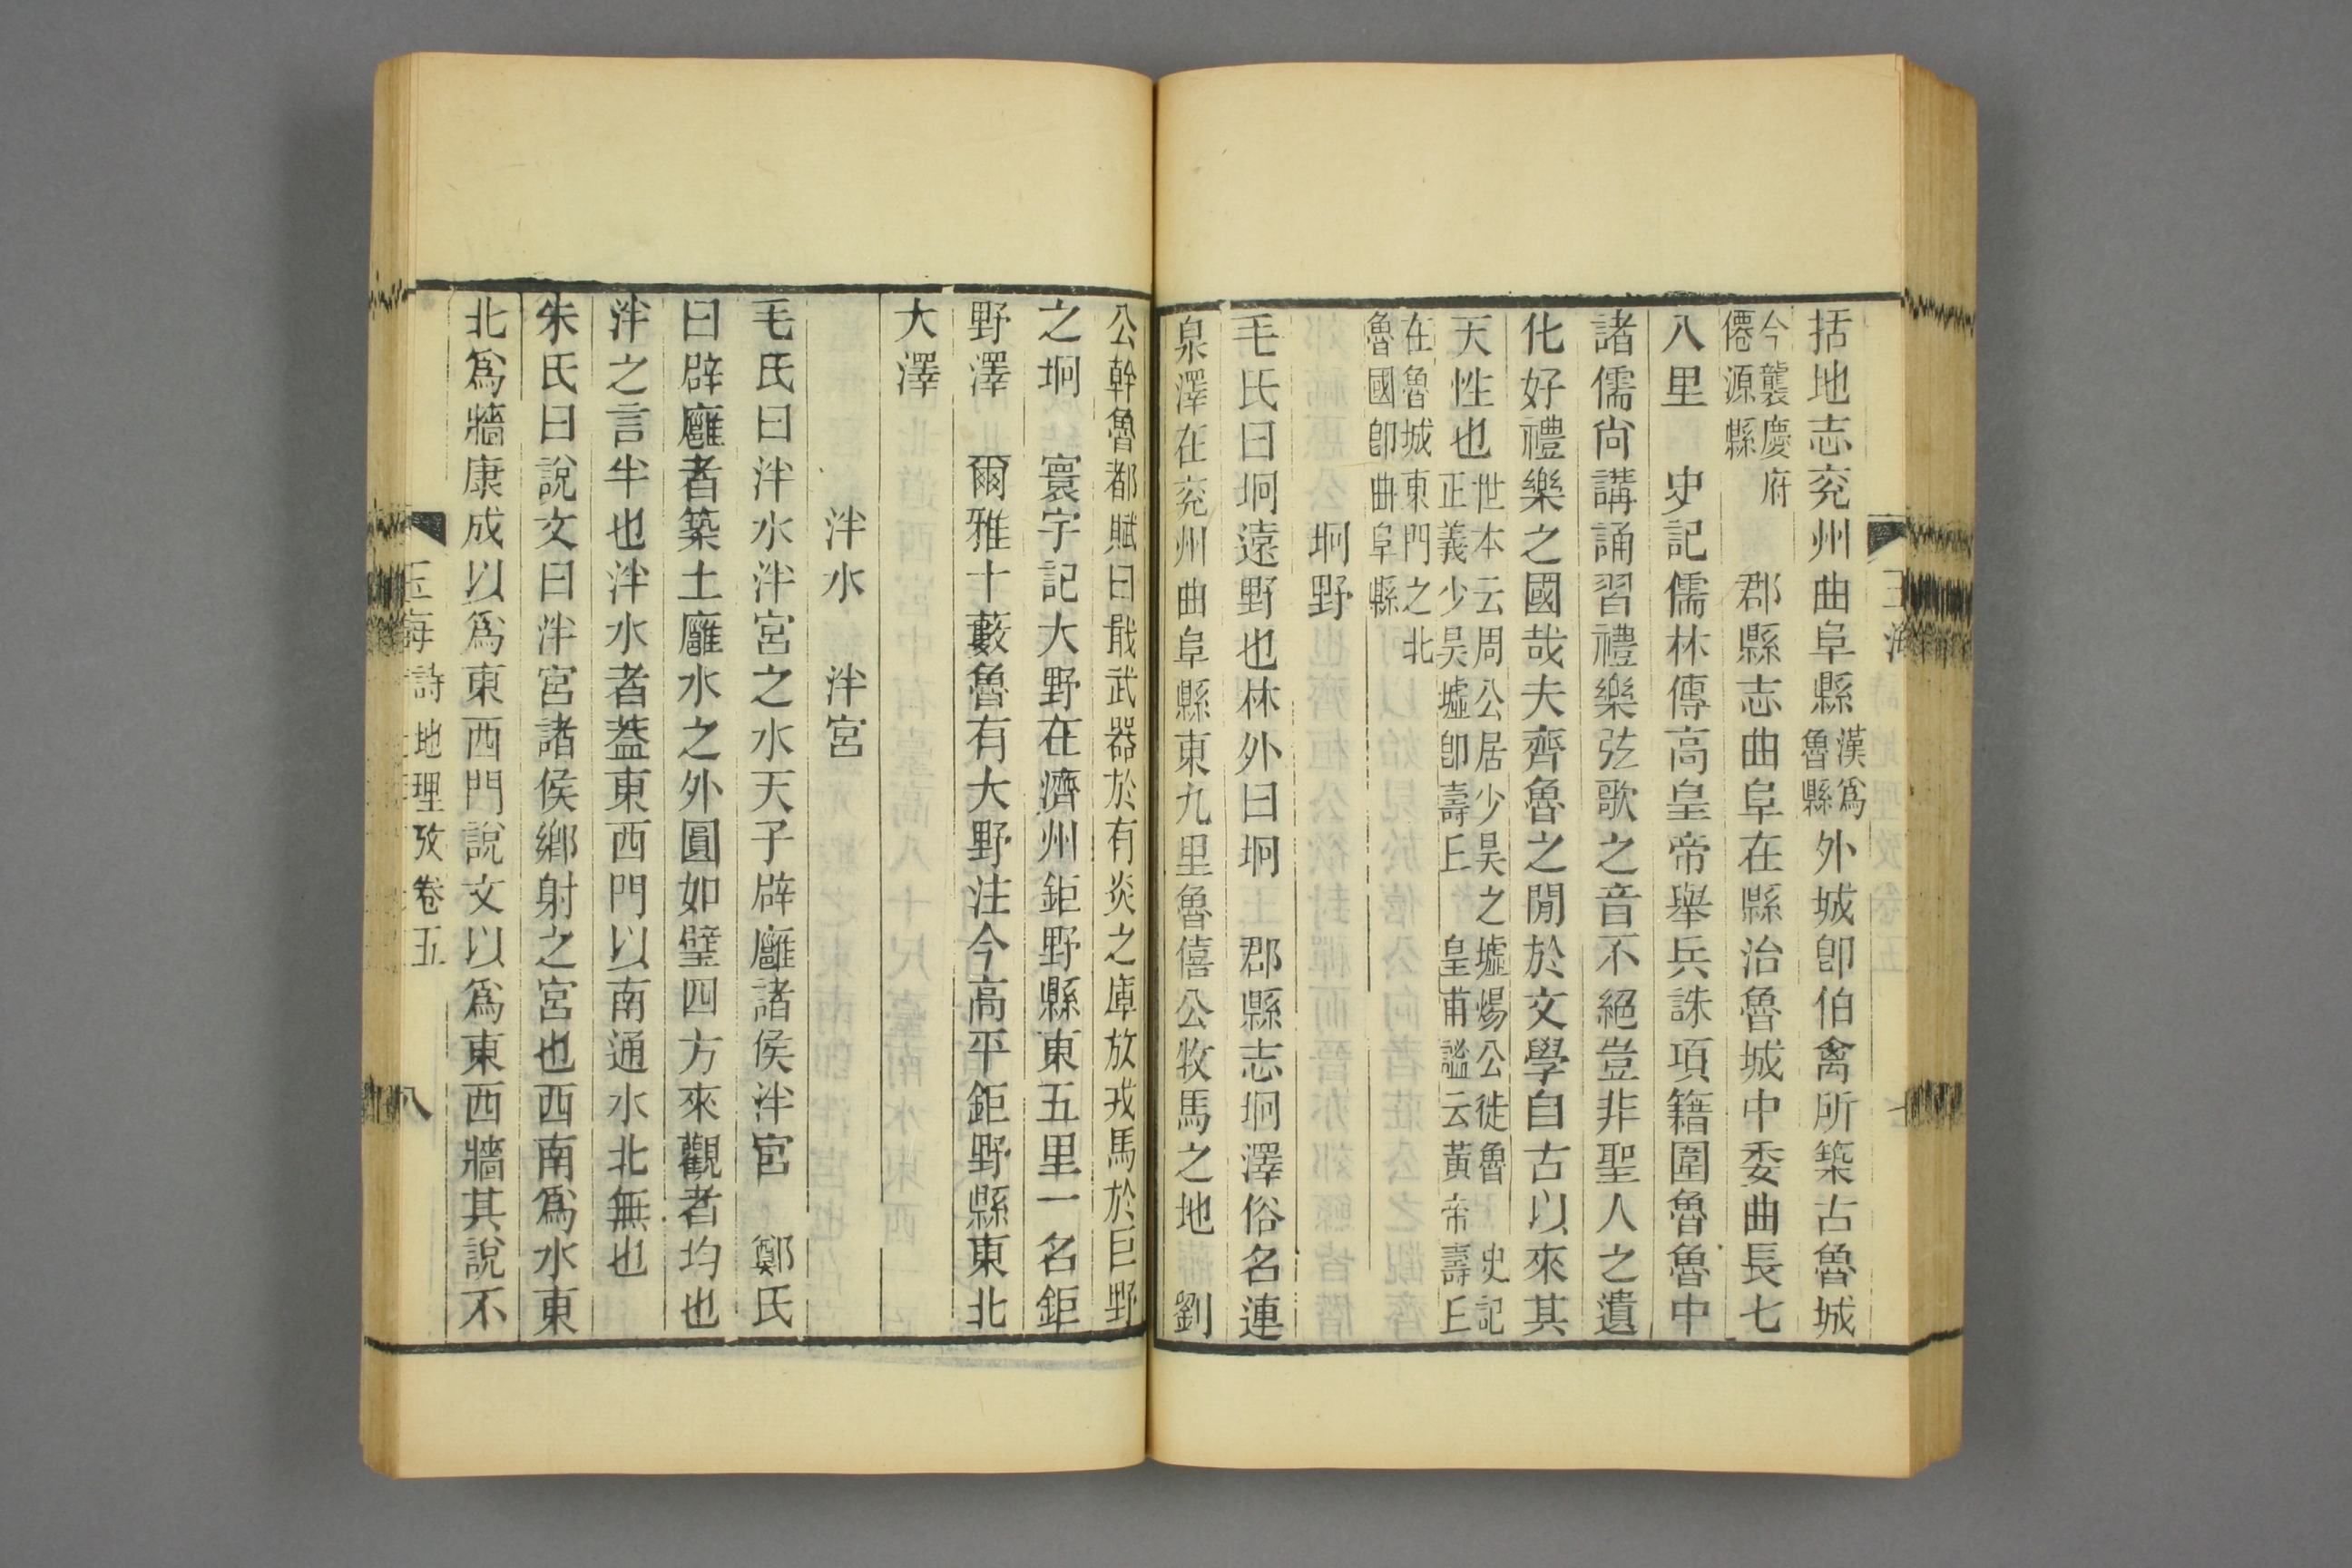 括地志兖州曲阜縣漢爲魯縣外城卽伯禽所築古魯城
今襲慶府僊源縣　郡縣志曲阜在縣治魯城中委曲長七
八里　史記儒林傳高皇帝舉兵誅項籍圍魯魯中
諸儒尚講誦習禮樂弦歌之音不絕豈非聖人之遺
化好禮樂之國哉夫齊魯之閒於文學自古以來其
天性也世本云周公居少昊之墟煬公徙魯　史記正義少昊墟卽壽丘　皇甫謐云黃帝壽丘
在魯城東門之北魯國卽曲阜縣
坰野
毛氏曰坰遠野也林外曰坰　郡縣志坰澤俗名連
泉澤在兖州曲阜縣東九里魯僖公牧馬之地　劉
公幹魯都賦曰戢武器於有炎之庫放戎馬於巨野
之坰　寰宇記大野在濟州鉅野縣東五里一名鉅
野澤　爾雅十藪魯有大野注今高平鉅野縣東北
大澤
泮水　泮宮
毛氏曰泮水泮宮之水天子辟廱諸侯泮宮　鄭氏
曰辟廱者築土廱水之外圓如璧四方來觀者均也
泮之言半也泮水者葢東西門以南通水北無也
朱氏曰說文曰泮宮諸侯鄉射之宮也西南爲水東
北爲牆康成以爲東西門說文以爲東西牆其說不
玉海　詩地理攷卷五　八